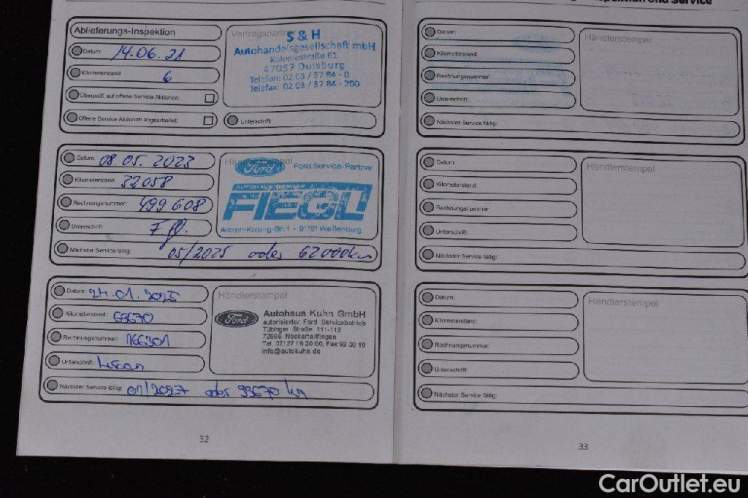 Ablieferungs-Inspektion
Datum: 14.06.21
Kilometerstand: 6
Überprüft auf offene Service Aktionen:
Offene Service Aktionen abgearbeitet:
Unterschrift:
S & H
Autohandelsgesellschaft mbH
47057 Duisburg
Datum: 08.05.2023
Kilometerstand: 32058
Rechnungsnummer: 499 608
Unterschrift:
Nächster Service fällig: 05/2025 oder 62000km
Ford
Ford Service-Partner
FIEGL
Datum: 24.01.2025
Kilometerstand: 63670
Rechnungsnummer: 166301
Unterschrift:
Nächster Service fällig: 01/2027 oder 93670 km
Händlerstempel
Ford
Autohaus Kuhn GmbH
autorisierter Ford Servicebetrieb
Tübinger Straße 111-113
info@autokuhn.de
32
Service
Datum:
Kilometerstand:
Rechnungsnummer:
Unterschrift:
Nächster Service fällig:
Händlerstempel
Datum:
Kilometerstand:
Rechnungsnummer:
Unterschrift:
Nächster Service fällig:
Händlerstempel
Datum:
Kilometerstand:
Rechnungsnummer:
Unterschrift:
Nächster Service fällig:
Händlerstempel
33
CarOutlet.eu